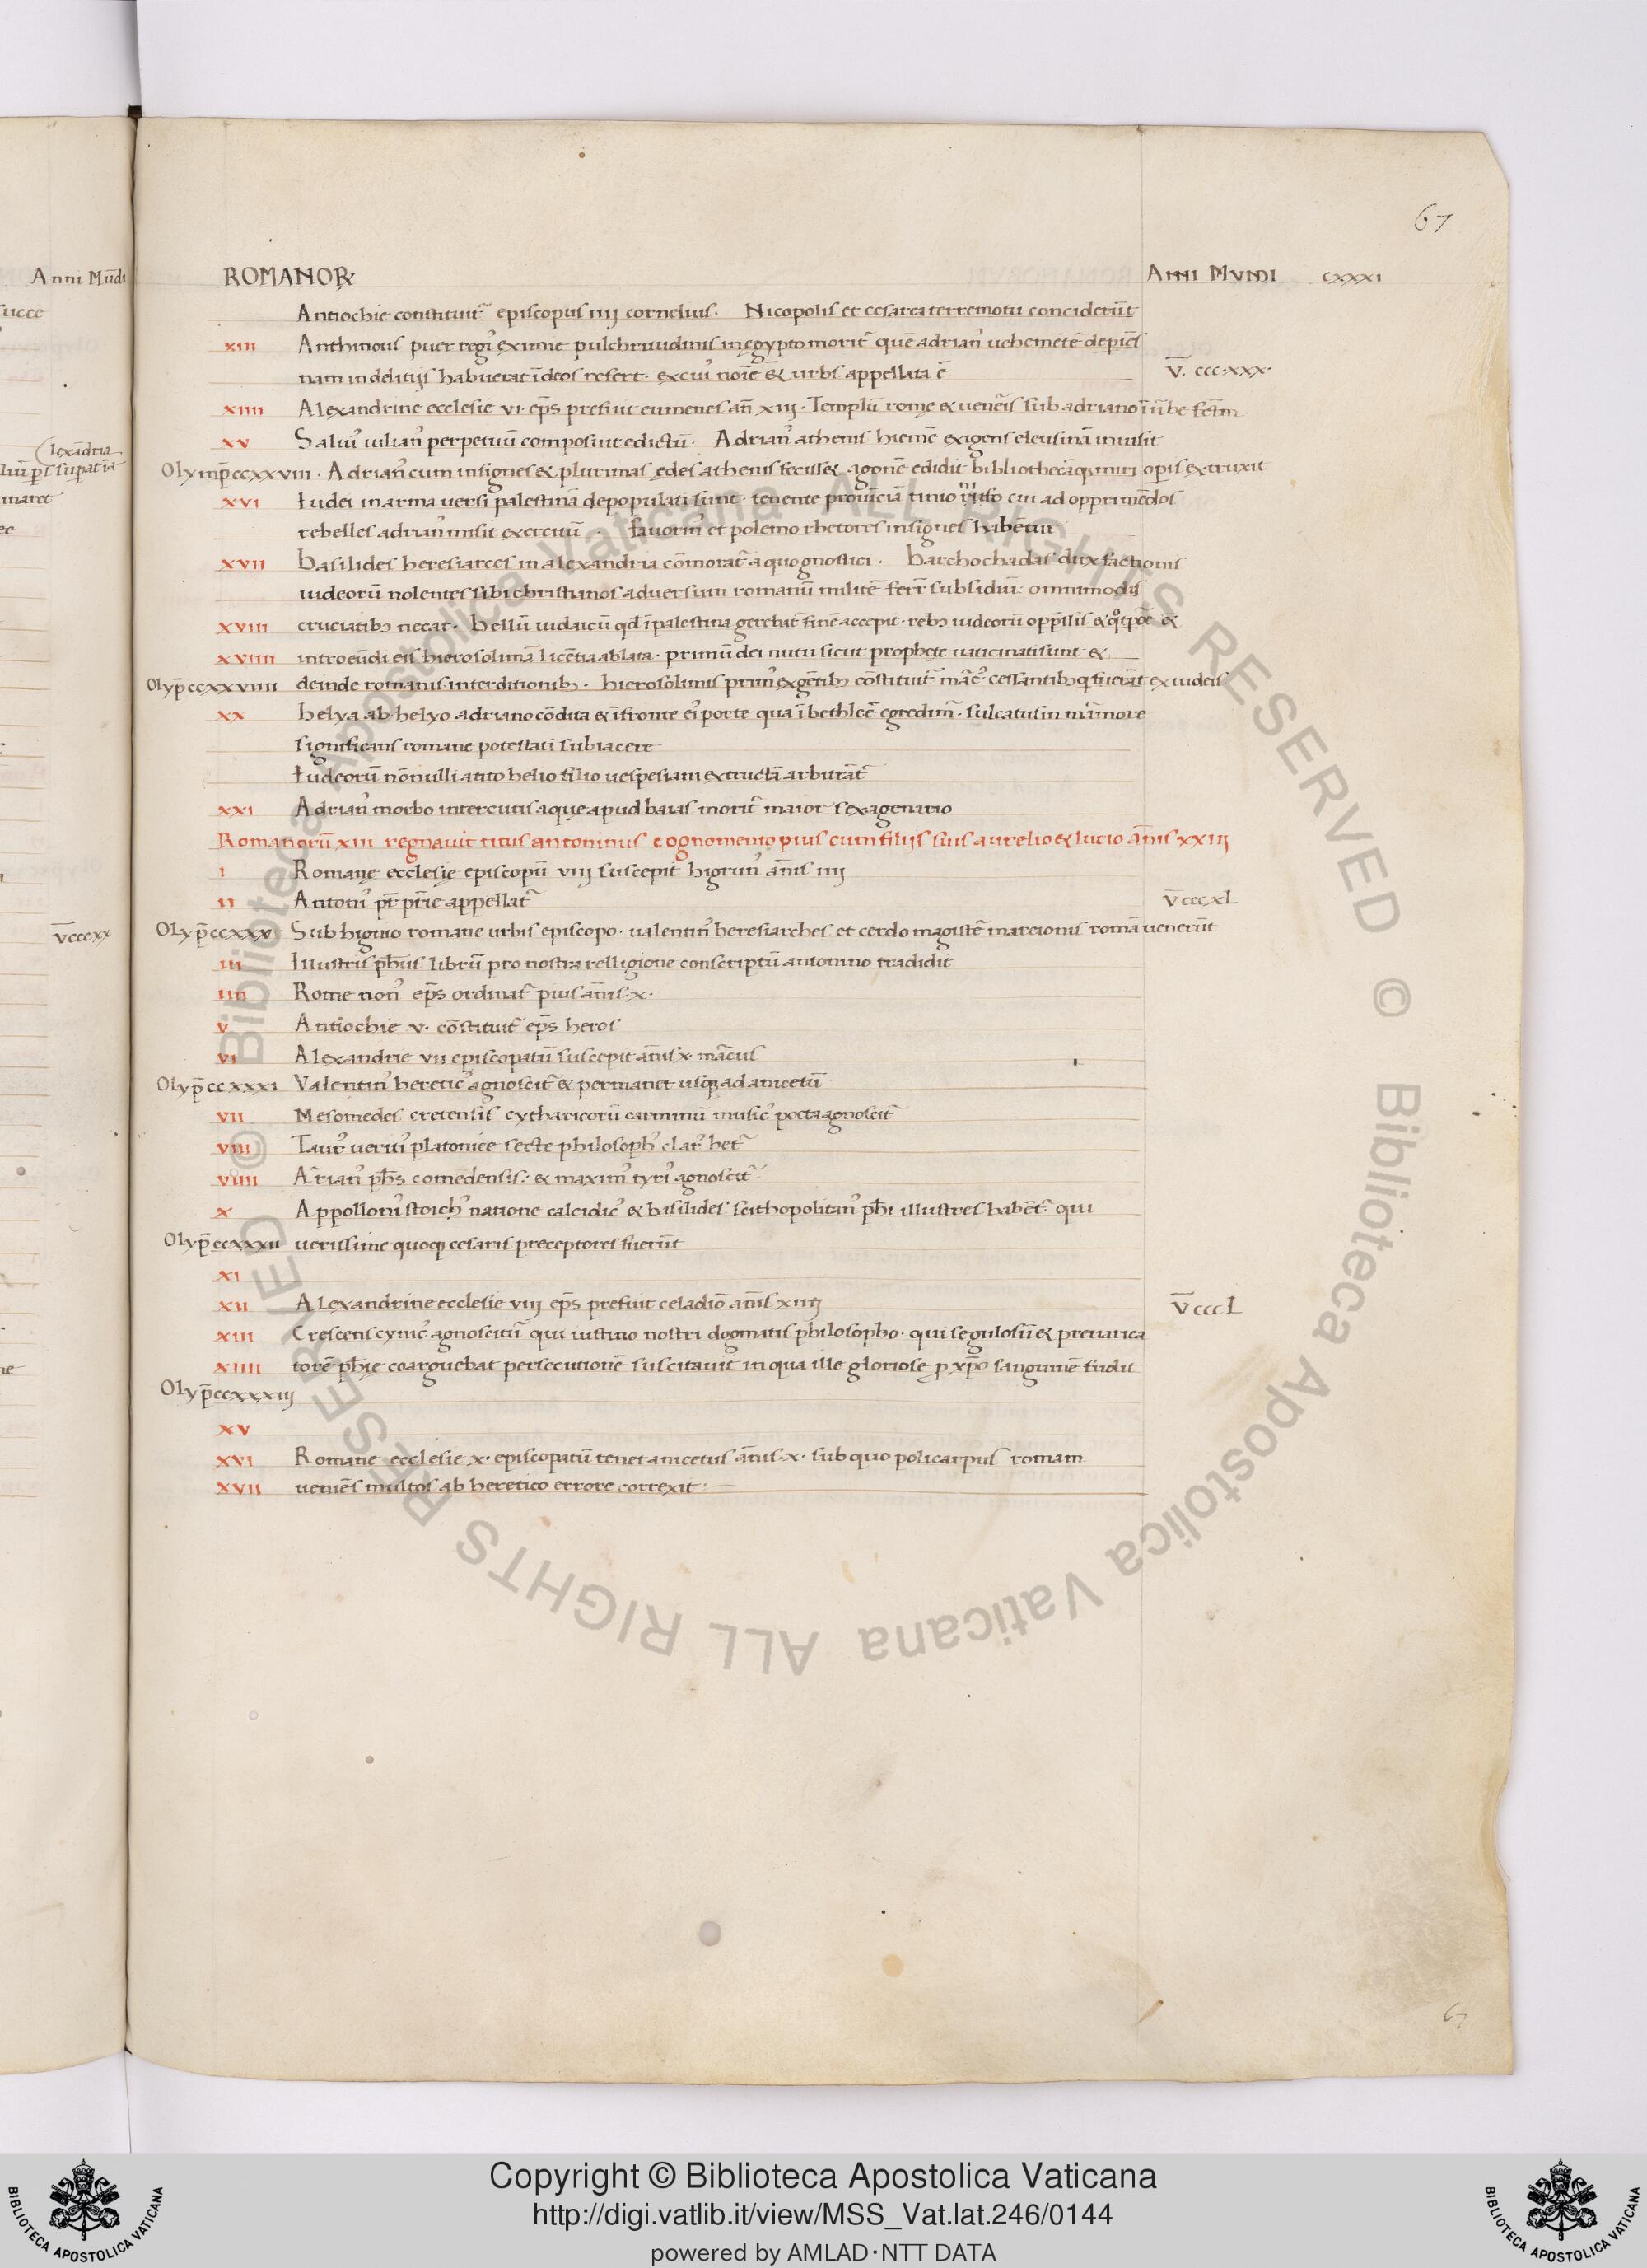 67
ROMANORꝜ Anni Mundi cxxxi
Antiochie constituit᷑ episcopus iiij cornelius. Nicopolis et cesarea terremotu conciderūt
xiii Anthinous puer regiꝰ eximie pulchritudinis in egypto morit᷑ quē adrianꝰ uehemēte᷑
nam in delitijs habuerat ī deos refert. ex cuiꝰ noīe & urbs appellata ē V̄. ccc.xxx.
xiiii Alexandrine ecclesie vi. ep̄s prefuit eumenes an̄ xiij. Templū rome & ueneris sub adriano
xv Saluiꝰ iulianꝰ perpetuū composuit edictū. Adrianꝰ athenis hiemē exigens eleusinā inuisit
Olymp̄ccxxviii. Adrianꝰ cum insignes & plurimas edes athenis fecisset agonē edidit bibliothecāqꝫ miri operis extruxit
xvi Iudei in arma uersi palestinā depopulati sunt. tenente prouīciā tinio ruffo cui ad opprimēdos
rebelles adrianꝰ misit exercitū. fauorinꝰ et polemo rhetores insignes habētur
xvii Basilides heresiarces in alexandria cōmorat᷑ a quo gnostici. barchochadas dux factionis
iudeorū nolentes sibi christianos aduersum romanū militē ferr̄ subsidiū. omnimodis
xviii cruciatibꝫ necat. Bellū iudaicū qd̄ ī palestina gerebat᷑ finē accepit. rebꝫ iudeorū opp̄ssis
xviiii introeūdi eis hierosolimā licētia ablata. primū dei nutu sicut prophete uaticinati sunt &
Olyp̄ccxxviiii deinde romanis interditionibꝫ. hierosolimis primꝰ ex gētibꝫ cōstituit᷑ cessantibꝫ ex iudeis
xx helya ab helyo adriano cōdita & ī fronte eiꝰ porte qua ī bethleē egredim᷑. sulcatus in marmore
significans romane potestati subiacere
Iudeorū nōnulli a tito helio filio uespesiani extructā arbitrāt᷑
xxi Adrianꝰ morbo intercutis aque apud baias morit᷑ maior sexagenario
Romanorū xiii regnauit titus antoninus cognomento pius cum filijs suis aurelio & lucio annis xxiij
i Romane ecclesie episcopū viij suscepit higinꝰ ānis iiij
ii Antoninꝰ pr̄ pr̄ie appellat᷑ V̄cccxl
Olyp̄ccxxx Sub higinio romane urbis episcopo. ualentinꝰ heresiarches et cerdo magist᷑ marcionis romā uenerūt
iii Illustris ph̄us librū pro nostra relligione conscriptū antonino tradidit
iiii Rome nonꝰ ep̄s ordinat᷑ pius ānis.x.
v Antiochie v. cōstituit᷑ ep̄s heros
vi Alexandrie vii episcopatū suscepit ānis x marcus
Olyp̄ccxxxi Valentinꝰ hereticꝰ agnoscit᷑ & permanet usqꝫ ad anicetū
vii Mesomedes cretensis cytharicorū carminū musicꝰ poeta agnoscit᷑
viii Taurꝰ ueritiꝰ platonice secte philosophꝰ clarꝰ het᷑
viiii Arrianꝰ ph̄s comedensis. & maximꝰ tyriꝰ agnoscit᷑
x Appolloniꝰ stoichꝰ natione calcidicꝰ & basilides scithopolitanꝰ ph̄i illustres habēt᷑. qui
Olyp̄ccxxxii uerissime quoqꝫ cesaris preceptores fuerūt
xi
xii Alexandrine ecclesie viij ep̄s prefuit celadiō ānis xiiij V̄cccl
xiii Crescens cynicꝰ agnoscitur qui iustino nostri dogmatis philosopho. qui se gulosū & preuarica
xiiii torē ph̄ie coarguebat persecutionē suscitauit in qua ille gloriose ꝓ xp̄o sanguinē fudit
Olyp̄ccxxxiij
xv
xvi Romane ecclesie x. episcopatū tenet anicetus ānis.x. sub quo policarpus romam
xvii ueniēs multos ab heretico errore correxit
67
Anni Mūdi
V̄cccxx
© Biblioteca Apostolica Vaticana ALL RIGHTS RESERVED © Biblioteca Apostolica Vaticana ALL RIGHTS RESERVED
BIBLIOTECA APOSTOLICA VATICANA
Copyright © Biblioteca Apostolica Vaticana
http://digi.vatlib.it/view/MSS_Vat.lat.246/0144
powered by AMLAD·NTT DATA
BIBLIOTECA APOSTOLICA VATICANA